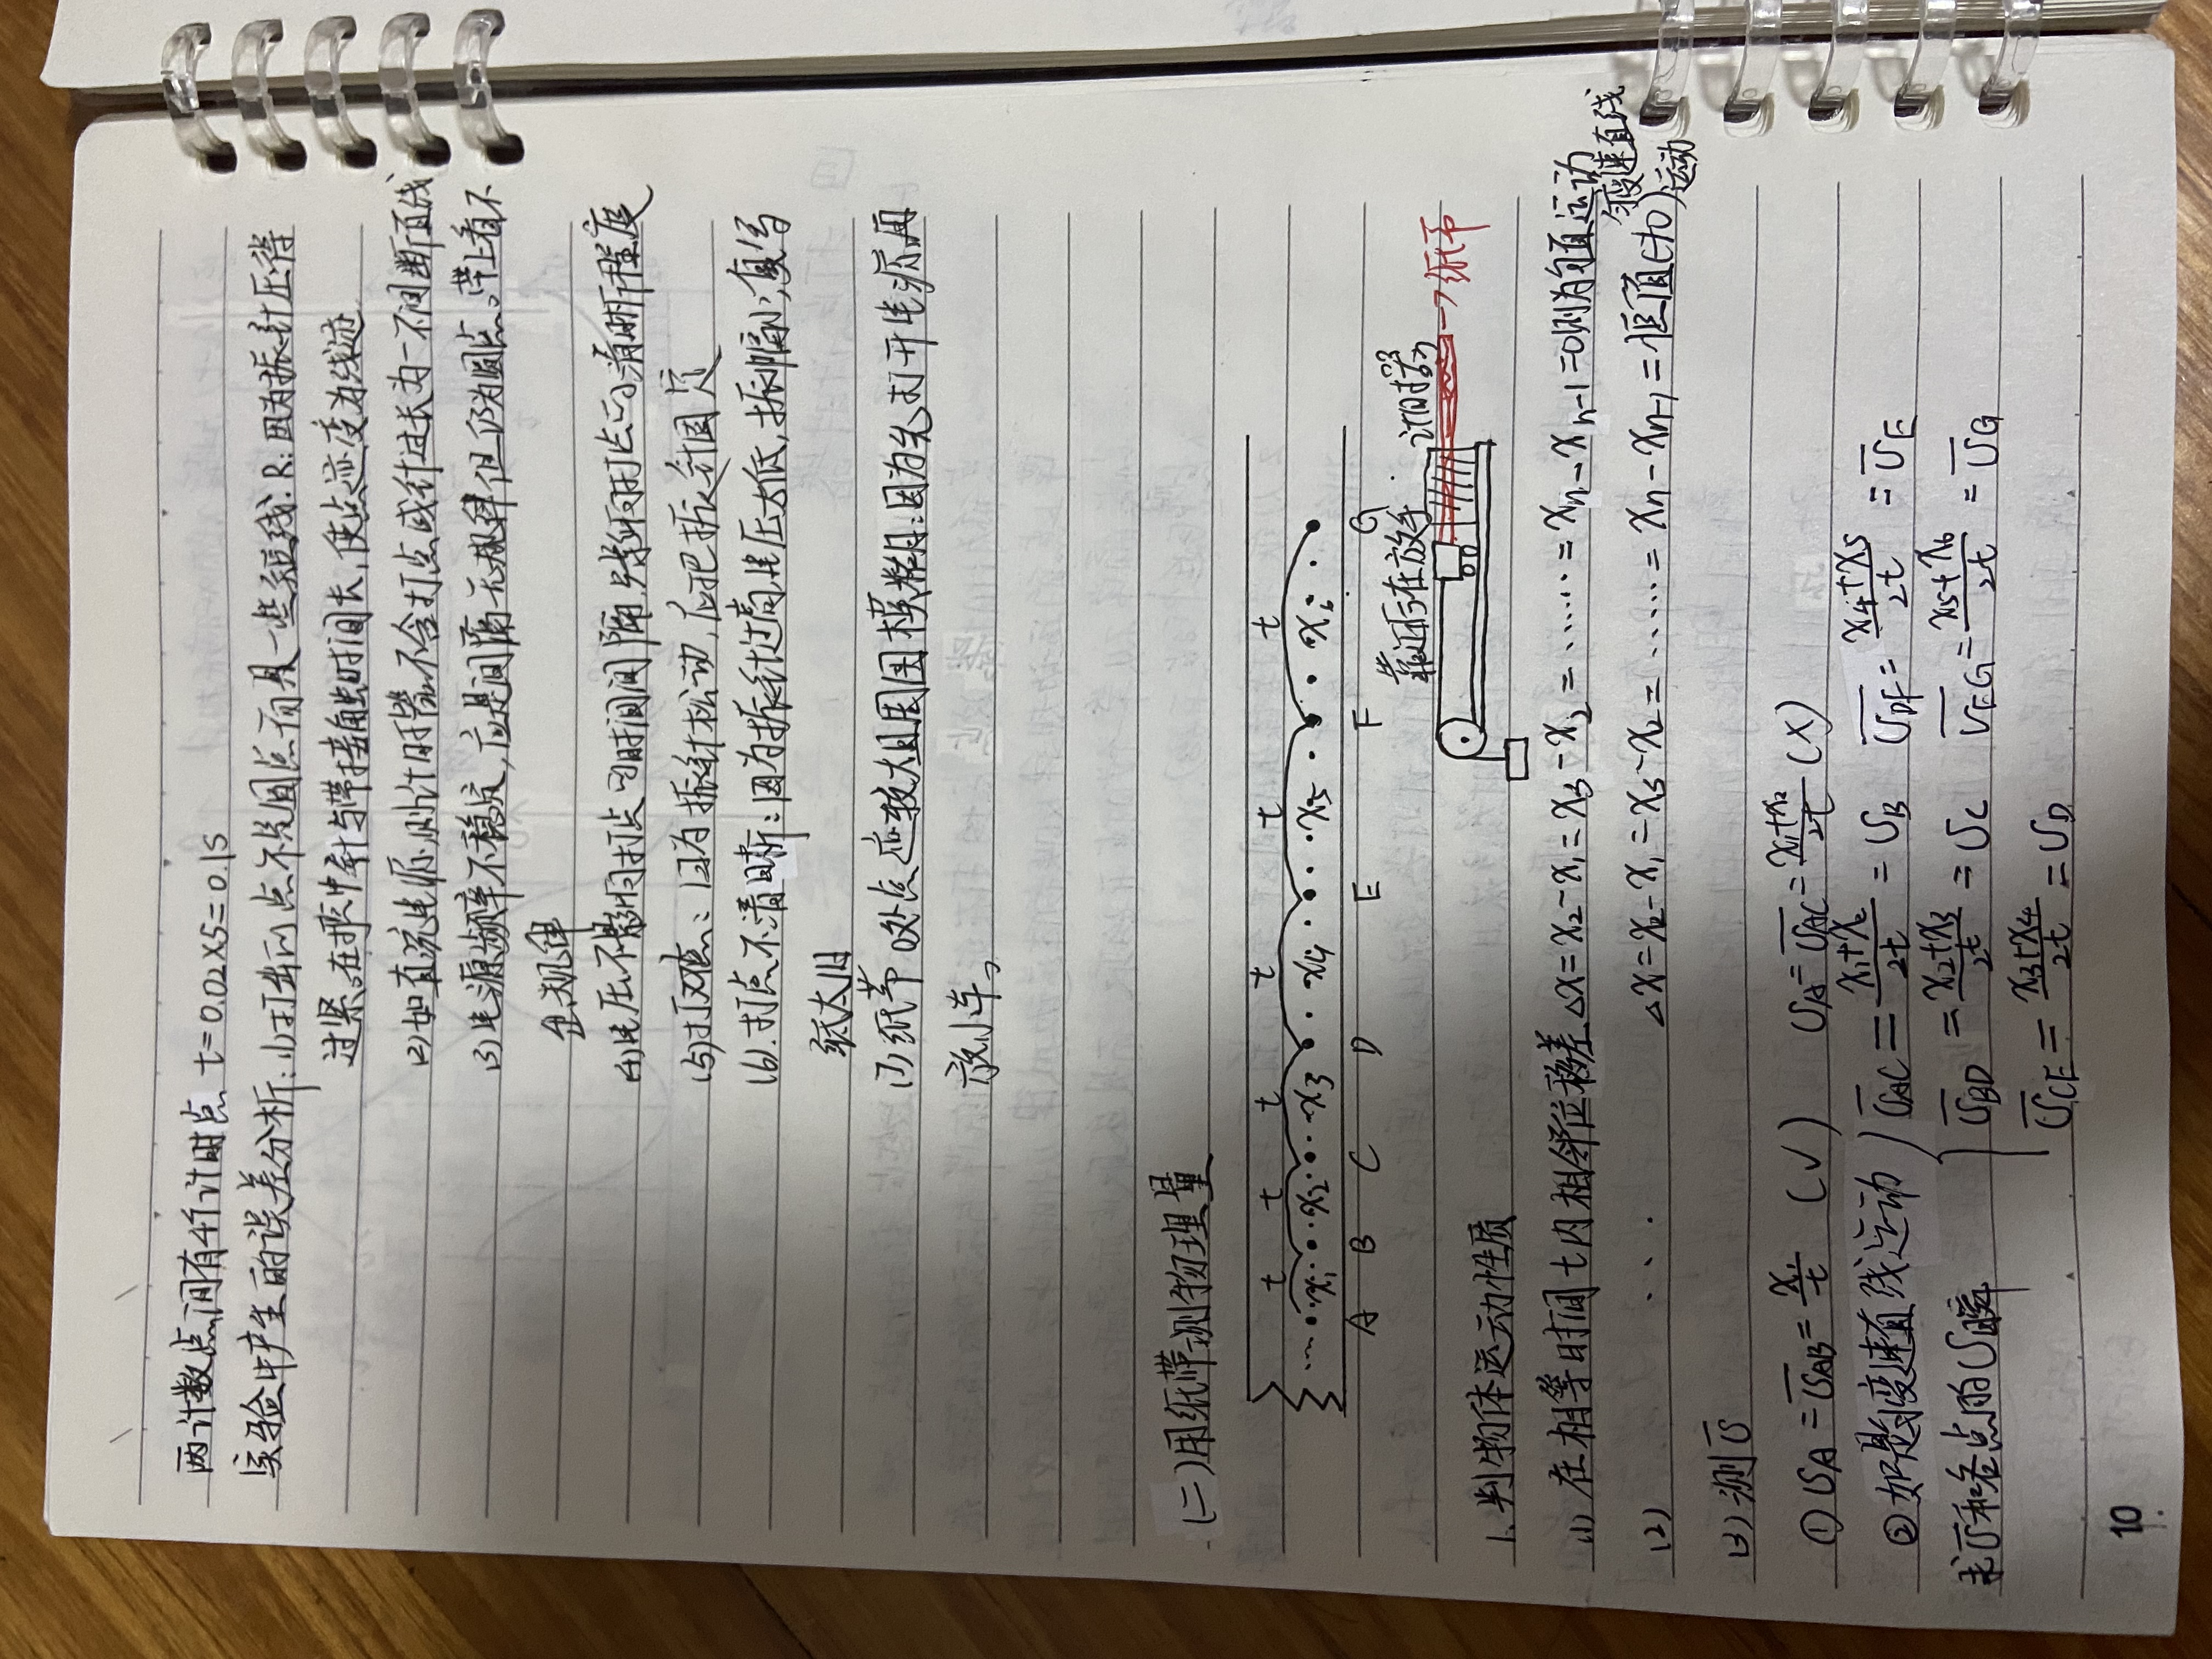 两计数点间有4个计时点 t=0.02×5=0.1s
实验中产生的误差分析:(1)打出的点不是圆点而是一些短线.R:因为振针压得
过紧。在其中针与带接触时间长,使点迹变为线迹
(2)如直流电源,则计时器不会打点或针过长为一不间断直线
(3)电源频率不稳定,应是间隔无规律但仍为圆点。带上看不
出规律
(4)电压不影响打点的时间间隔,影响打点的清晰程度
(5)打双点:因为振针松动,应把振针固定
(6).打点不清晰:因为振针过高,电压太低,振幅小,复写
纸太旧
(7)纸带0处点迹较大且周围模糊:因为先打开电源,再
放小车。
(二)用纸带测物理量
t t t t t t
…· x₁ ·· x₂ ·· x₃ · x₄ · x₅ · x₆
A B C D E F G
靠近后在放手. 计时器 →纸带
1.判物体运动性质
(1)在相等时间t内相邻位移差△x=x₂-x₁=x₃-x₂=……=xₙ-xₙ₋₁=0则为匀直运动
(2) . . . △x=x₂-x₁=x₃-x₂=……=xₙ-xₙ₋₁=恒值(≠0)匀变速直线运动
(3)测v̅
①v_A=v̅_AB=x₁/t (√) v_A=v̅_AC=(x₁+x₂)/2t (×)
②如是匀变速直线运动 v̅_AC=(x₁+x₂)/2t=v_B v̅_DF=(x₄+x₅)/2t=v̅_E
求v̅和各点的v瞬 v̅_BD=(x₂+x₃)/2t=v_C v̅_EG=(x₅+x₆)/2t=v̅_G
v̅_CE=(x₃+x₄)/2t=v_D
10